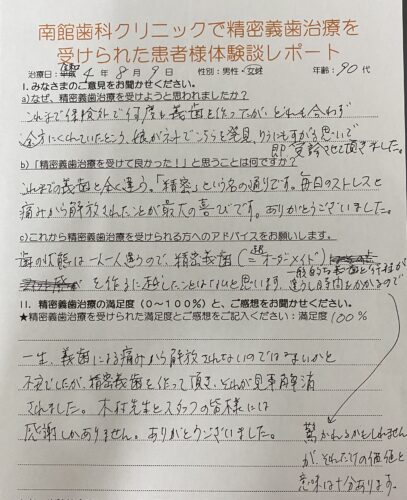 南館歯科クリニックで精密義歯治療を
受けられた患者様体験談レポート
治療日：令和 4 年 8 月 9 日　性別：男性・女性　年齢：90 代
Ⅰ.みなさまのご意見をお聞かせください。
a)なぜ、精密義歯治療を受けようと思われましたか？
これまで保険外で何度も義歯を作ったが、どれも合わず
途方にくれていたところ、娘がネットでこちらを発見、わらにもすがる思いで
即 受診させて頂きました。
b)「精密義歯治療を受けて良かった！！」と思うことは何ですか？
これまでの義歯と全く違う。「精密」という名の通りです。毎日のストレスと
痛みから解放されたことが最大の喜びです。ありがとうございました。
c)これから精密義歯治療を受けられる方へのアドバイスをお願いします。
歯の状態は一人一人違うので、精密義歯（＝超オーダーメイド）
を作るに越したことはないと思います。
一般的な義歯と行程が
違うし時間もかかるので
Ⅱ.精密義歯治療の満足度（0～100％）と、ご感想をお聞かせください。
★精密義歯治療を受けられた満足度とご感想をご記入ください：満足度 100％
一生、義歯による痛みから解放されないのではないかと
不安でしたが、精密義歯を作って頂き、それが見事解消
されました。木村先生とスタッフの皆様には
感謝しかありません。ありがとうございました。
驚かれるかもしれません
が、それだけの価値と
意味は十分あります。